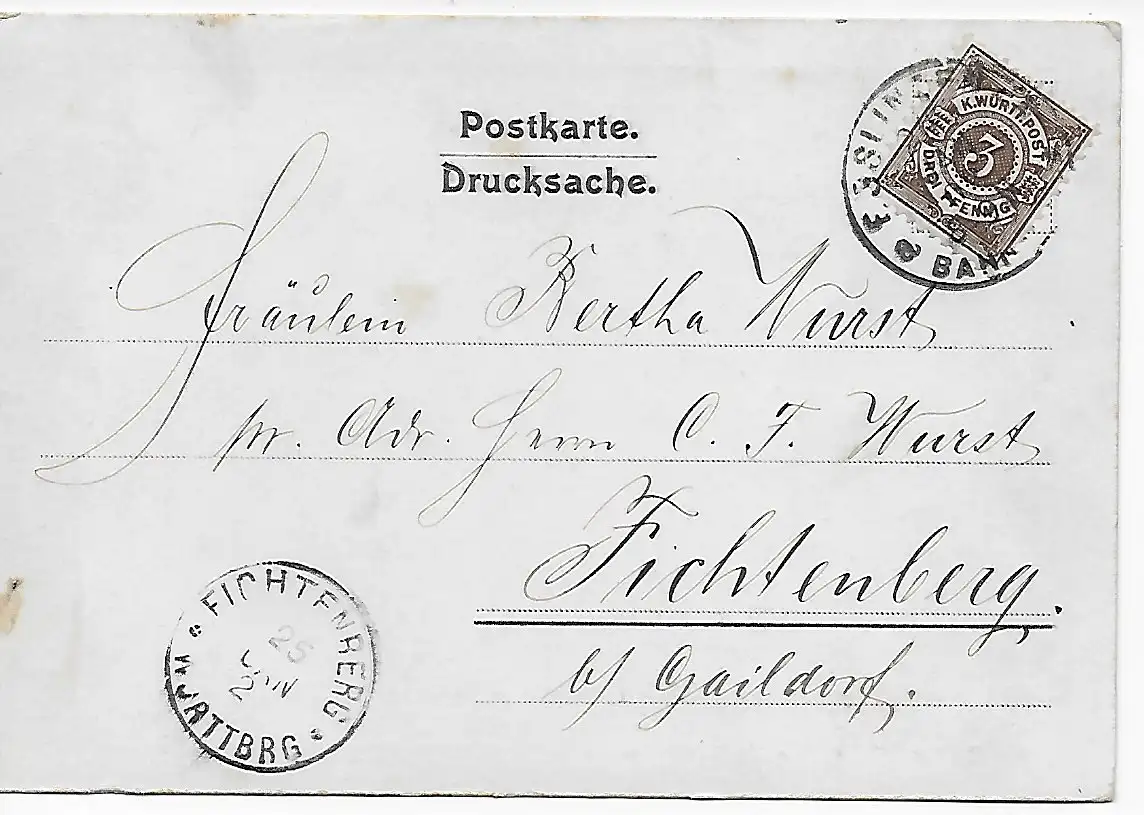 Postkarte.
Drucksache.
K. WÜRTT. POST
DREI PFENNIG
3
ESSLINGEN
BAHN
Fräulein Bertha Wurst
pr. Adr. Herrn C. F. Wurst
Fichtenberg.
b/ Gaildorf.
FICHTENBERG
25
JAN
2
WÜRTTBRG